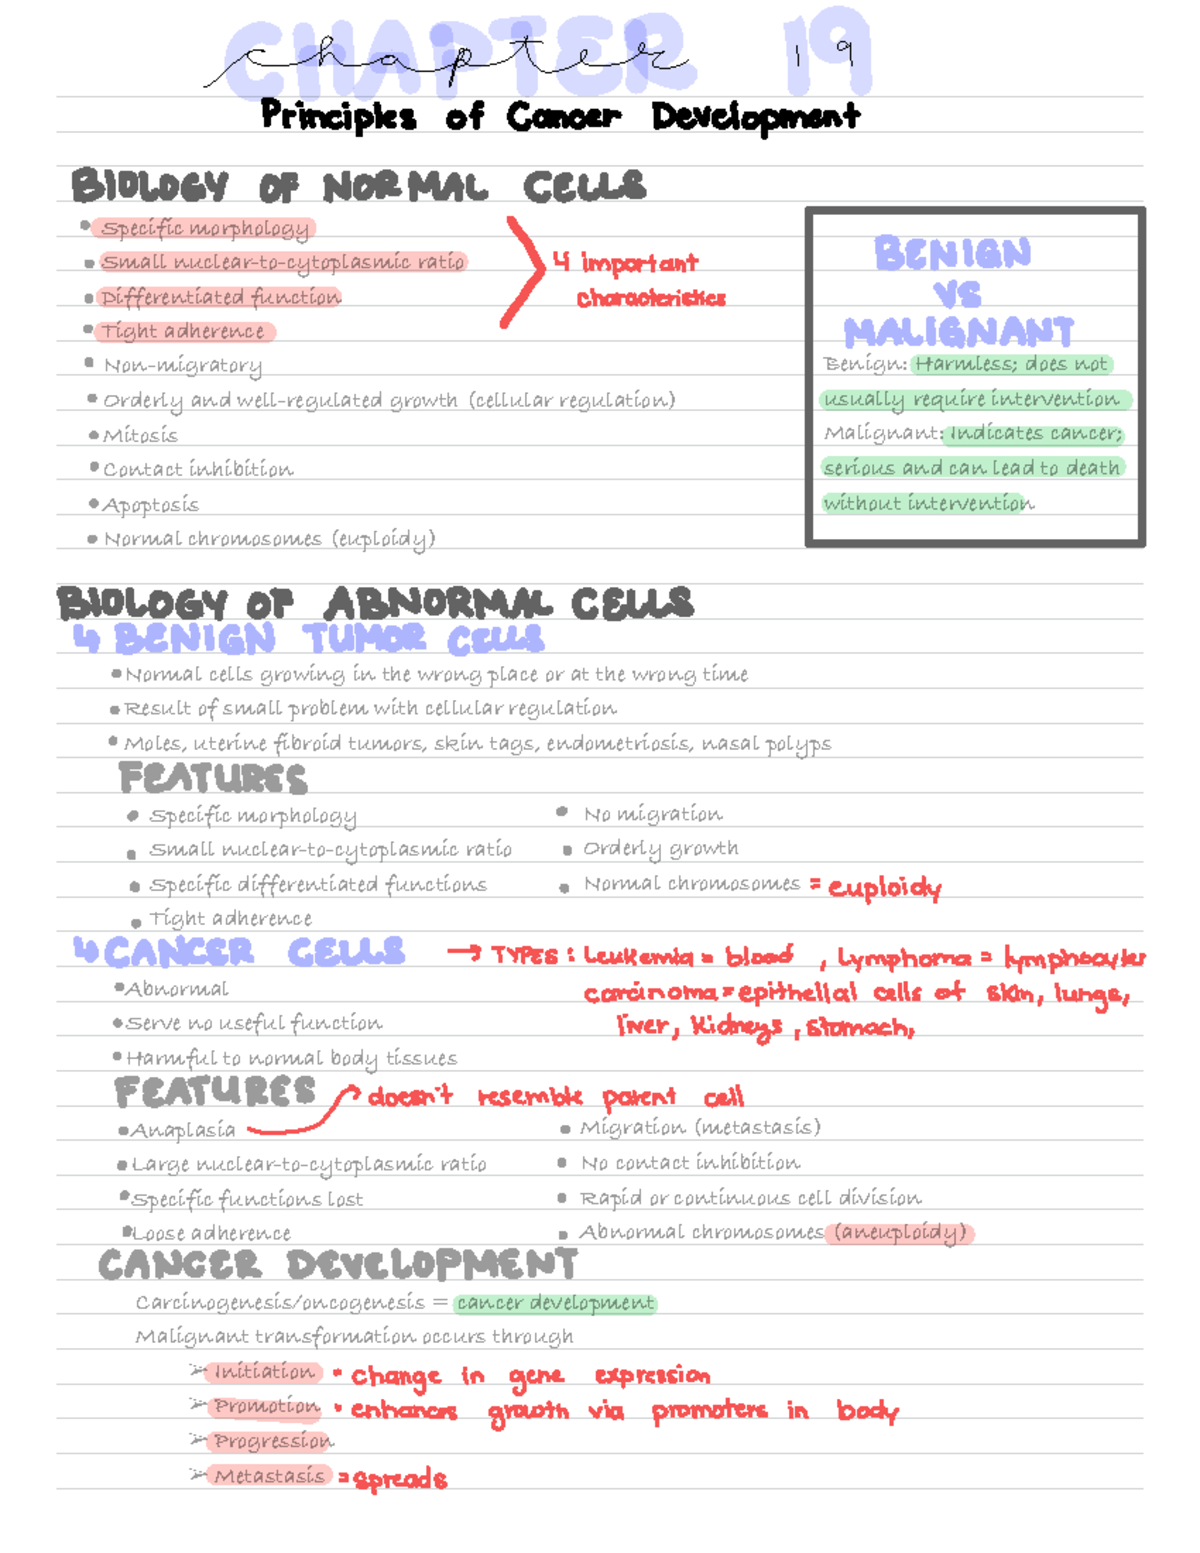 CHAPTER 19
chapter 19
Principles of Cancer Development
BIOLOGY OF NORMAL CELLS
• Specific morphology
• Small nuclear-to-cytoplasmic ratio
• Differentiated function
• Tight adherence
4 important
characteristics
• Non-migratory
• Orderly and well-regulated growth (cellular regulation)
• Mitosis
• Contact inhibition
• Apoptosis
• Normal chromosomes (euploidy)
BENIGN
VS
MALIGNANT
Benign: Harmless; does not
usually require intervention
Malignant: Indicates cancer;
serious and can lead to death
without intervention
BIOLOGY OF ABNORMAL CELLS
↳ BENIGN TUMOR CELLS
• Normal cells growing in the wrong place or at the wrong time
• Result of small problem with cellular regulation
• Moles, uterine fibroid tumors, skin tags, endometriosis, nasal polyps
FEATURES
• Specific morphology
• Small nuclear-to-cytoplasmic ratio
• Specific differentiated functions
• Tight adherence
• No migration
• Orderly growth
• Normal chromosomes = euploidy
↳ CANCER CELLS → TYPES: Leukemia = blood, Lymphoma = lymphocytes
carcinoma = epithelial cells of skin, lungs,
liver, kidneys, stomach,
• Abnormal
• Serve no useful function
• Harmful to normal body tissues
FEATURES
doesn't resemble parent cell
• Anaplasia
• Large nuclear-to-cytoplasmic ratio
• Specific functions lost
• Loose adherence
• Migration (metastasis)
• No contact inhibition
• Rapid or continuous cell division
• Abnormal chromosomes (aneuploidy)
CANCER DEVELOPMENT
Carcinogenesis/oncogenesis = cancer development
Malignant transformation occurs through
➢ Initiation • change in gene expression
➢ Promotion • enhances growth via promoters in body
➢ Progression
➢ Metastasis = spreads